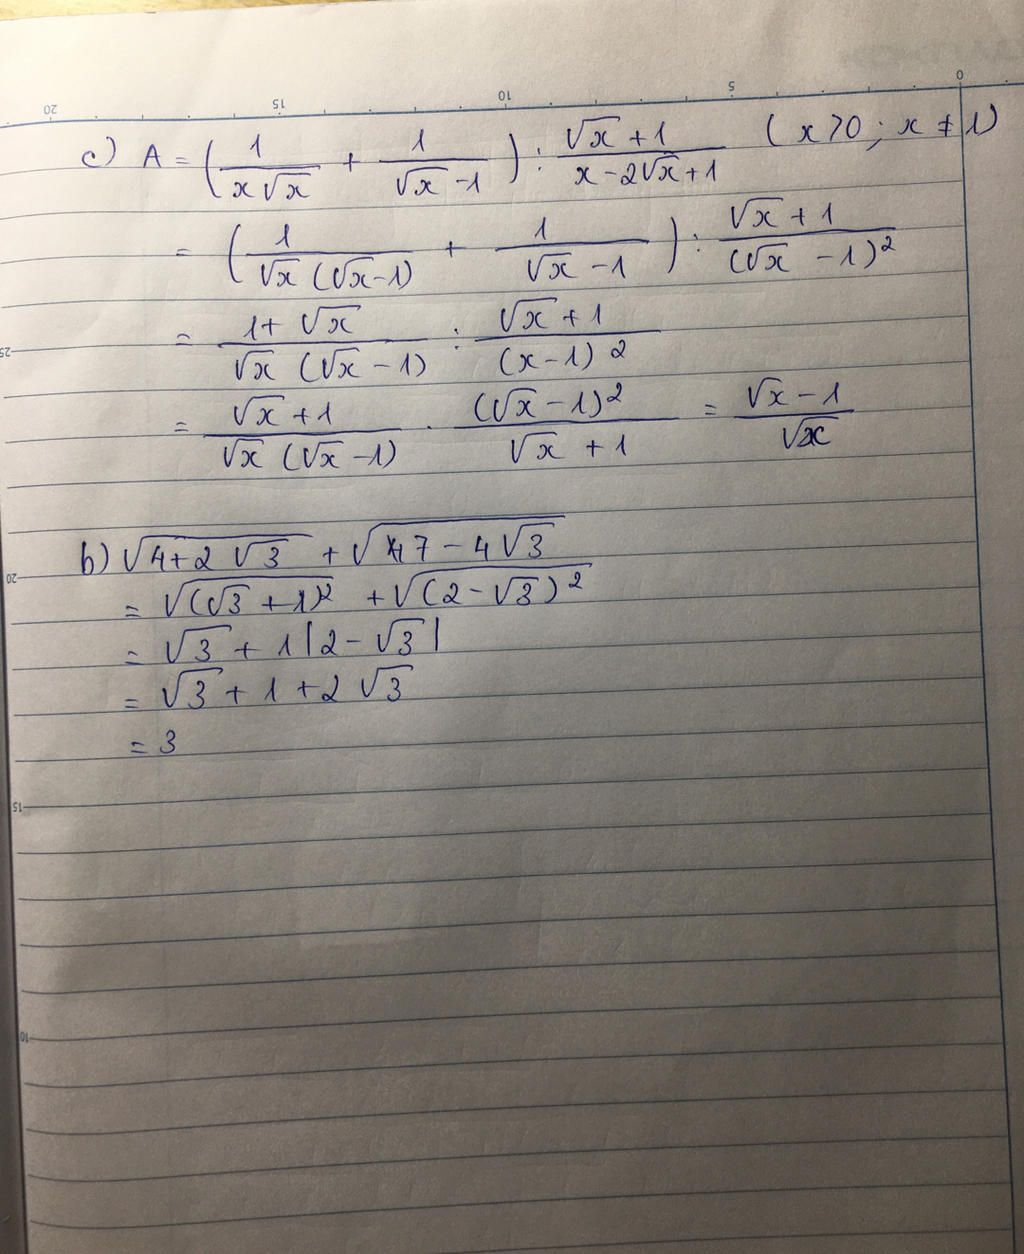 20 15 10 5 0
c) A = (1/(x√x) + 1/(√x - 1)) : (√x + 1)/(x - 2√x + 1) (x > 0 ; x ≠ 1)
= (1/(√x (√x - 1)) + 1/(√x - 1)) : (√x + 1)/(√x - 1)²
25
= (1 + √x)/(√x (√x - 1)) : (√x + 1)/(x - 1)²
= (√x + 1)/(√x (√x - 1)) . (√x - 1)²/(√x + 1) = (√x - 1)/√x
b) √(4 + 2√3) + √(7 - 4√3)
20
= √((√3 + 1)²) + √((2 - √3)²)
= √3 + 1 |2 - √3|
= √3 + 1 + 2 √3
= 3
15
10